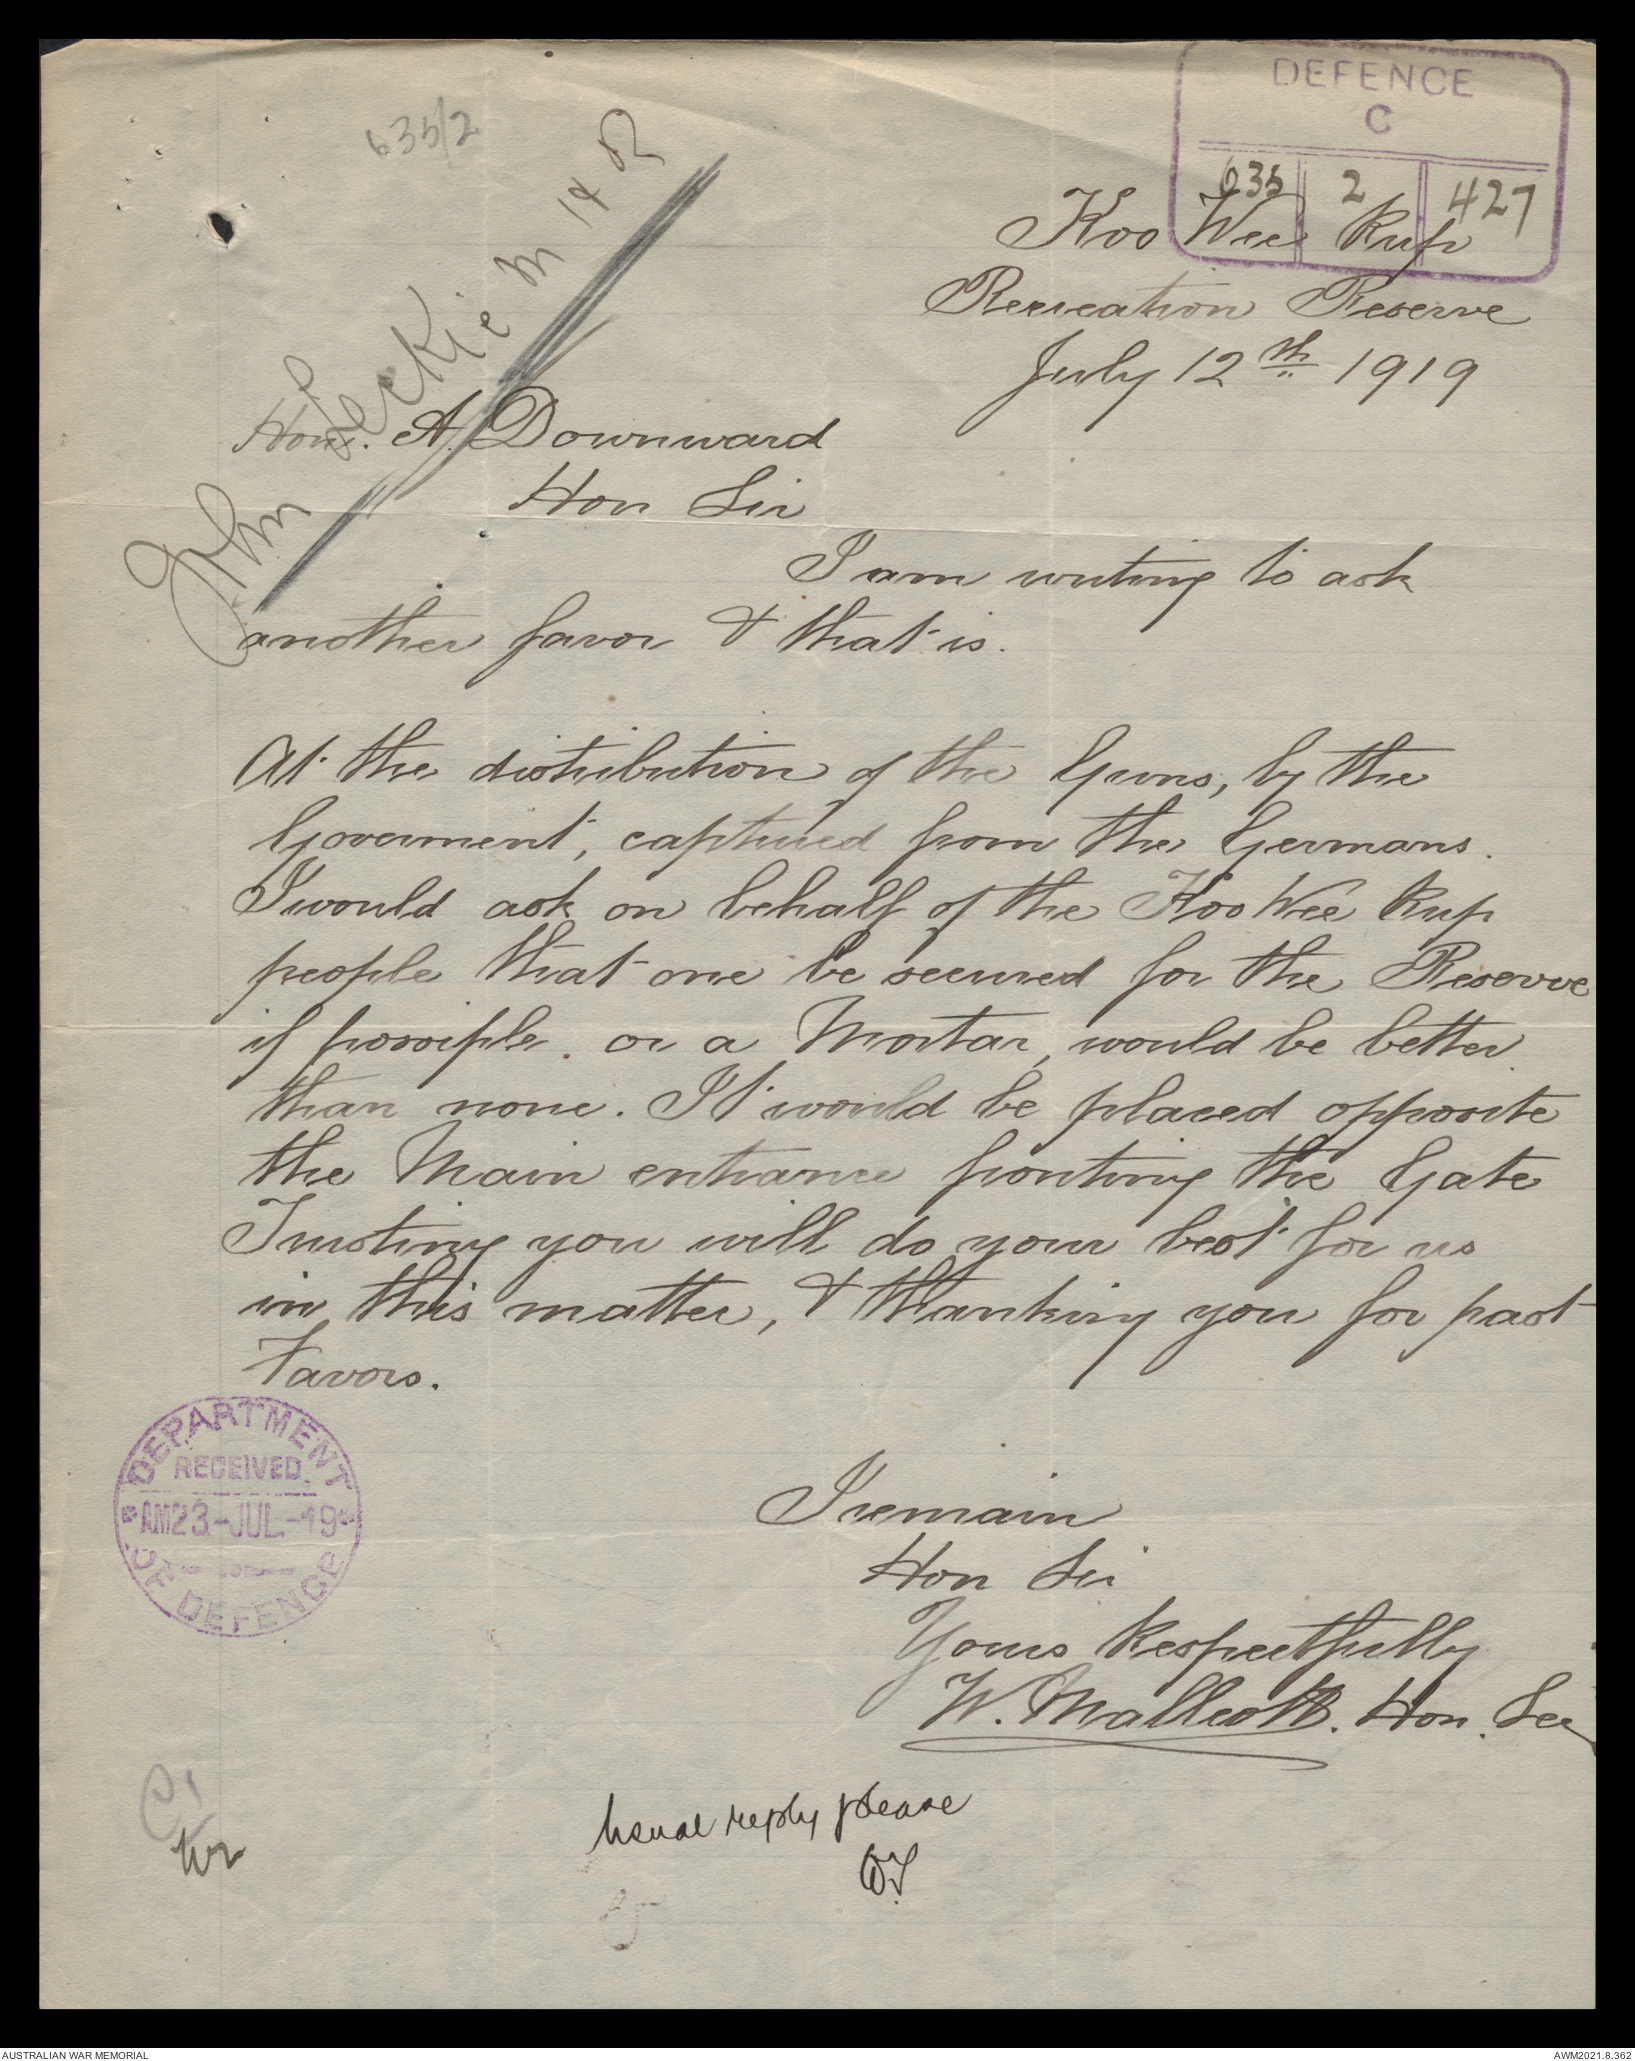 635/2
DEFENCE
C
635 2 427
John Leckie M H R
Koo Wee Rup
Recreation Reserve
July 12th 1919
Hon. A. Downward
Hon Sir
I am writing to ask
another favor & that is.
At the distribution of the Guns, by the
Goverment, captured from the Germans.
I would ask on behalf of the Koo Wee Rup
people that one be secured for the Reserve
if possiple. or a Mortar, would be better
than none. It would be placed opposite
the Main entrance fronting the Gate
Trusting you will do your best for us
in this matter, & thanking you for past
Favors.
DEPARTMENT
RECEIVED
AM23-JUL-19
OF DEFENCE
I remain
Hon Sir
Yours Respectfully
W. Mallcott. Hon. Sec
Usual reply please
AUSTRALIAN WAR MEMORIAL
AWM2021.8.362